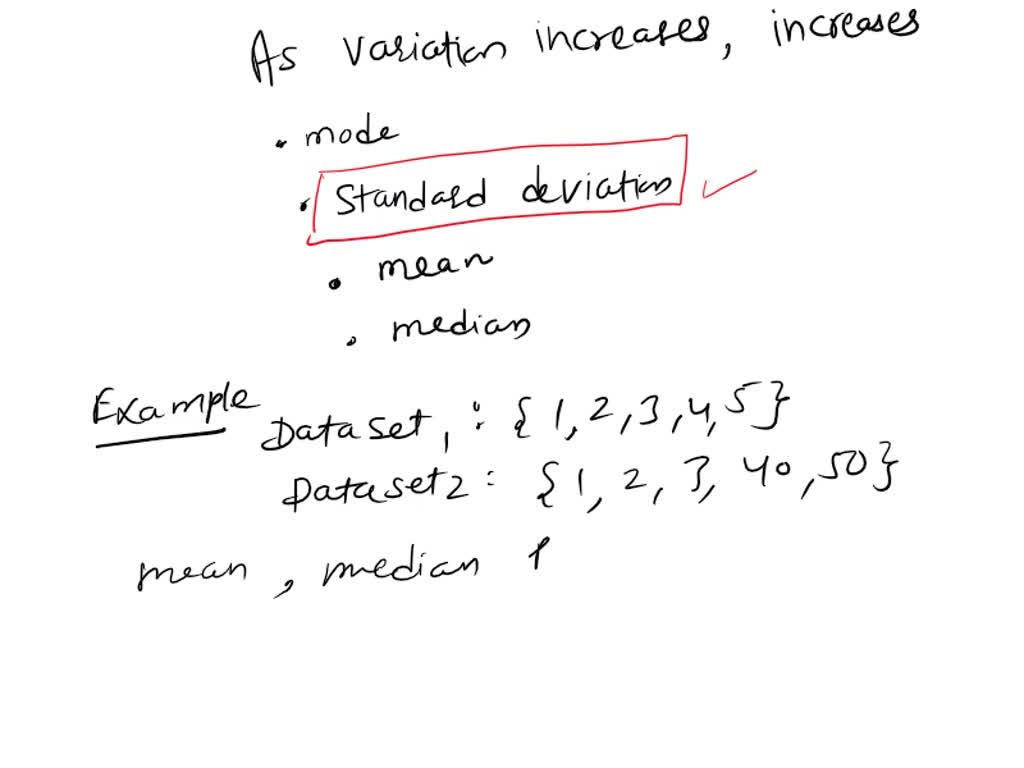 As variation increases, increases
• mode
• Standard deviation ✓
• mean
• median
Example
Dataset1 : {1,2,3,4,5}
Dataset2 : {1, 2, 3, 40, 50}
mean, median